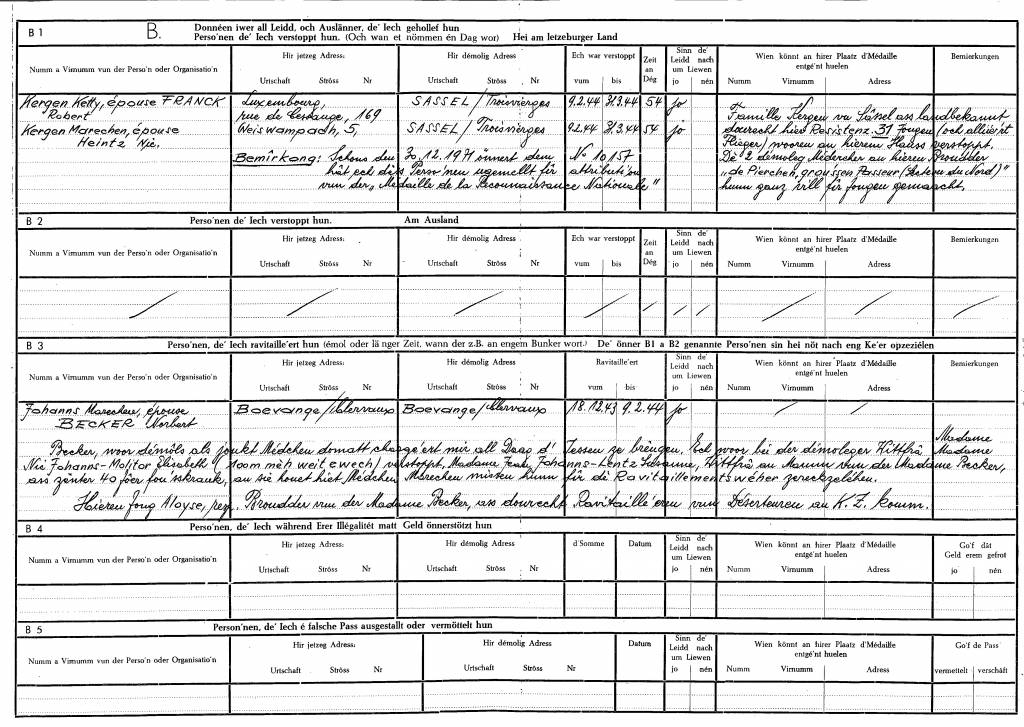 B 1 B. Donnéen iwer all Leidd, och Auslänner, de' Iech gehollef hun
Perso'nen de' Iech verstoppt hun. (Och wan et nömmen én Dag wor) Hei am letzeburger Land
Numm a Virnumm vun der Perso'n oder Organisatio'n
Hir jetzeg Adress:
Urtschaft Ströss Nr
Hir démolig Adress:
Urtschaft Ströss Nr
Ech war verstoppt
vum bis
Zeit
an
Dég
Sinn de'
Leidd nach
um Liewen
jo nén
Wien könnt an hirer Plaatz d'Médaille
entgé'nt huelen
Numm Virnumm Adress
Bemierkungen
Kergen Ketty, épouse FRANCK Luxembourg, SASSEL / Troisvierges 9.2.44 31.3.44 54 jo
Robert rue de Cessange, 169
Kergen Marechen, épouse Weiswampach, 5, SASSEL / Troisvierges 9.2.44 31.3.44 54 jo
Heintz Nic.
Bemîrkong: Schons den 30.12.1971 önnert dem No 10157
hât ech dës Perso'nen ugemellt fir attributi'on
vun der „Médaille de la Reconnaissance Nationale"
Famille Kergen vu Sässel ass landbekannt
dourecht hier Resistenz. 31 Jongen (och alliéiert
Flieger) wooren an hierem Hauss verstoppt.
Dé 2 démoleg Médercher an hieren Broudder
„de Pierchen, groussen Passeur (Secteur du Nord)"
hunn ganz vill fir Jongen gemaacht.
B 2 Perso'nen de' Iech verstoppt hun. Am Ausland
Numm a Virnumm vun der Perso'n oder Organisatio'n
Hir jetzeg Adress:
Urtschaft Ströss Nr
Hir démolig Adress
Urtschaft Ströss Nr
Ech war verstoppt
vum bis
Zeit
an
Dég
Sinn de'
Leidd nach
um Liewen
jo nén
Wien könnt an hirer Plaatz d'Médaille
entgé'nt huelen
Numm Virnumm Adress
Bemierkungen
B 3 Perso'nen, de' Iech ravitaille'ert hun (émol oder lä nger Zeit, wann der z.B. an engem Bunker wort.) De' önner B1 a B2 genannte Perso'nen sin hei nöt nach eng Ke'er opzeziélen
Numm a Virnumm vun der Perso'n oder Organisatio'n
Hir jetzeg Adress:
Urtschaft Ströss Nr
Hir démolig Adress
Urtschaft Ströss Nr
Ravitaille'ert
vum bis
Sinn de'
Leidd nach
um Liewen
jo nén
Wien könnt an hirer Plaatz d'Médaille
entgé'nt huelen
Numm Virnumm Adress
Bemierkungen
Johanns Marechen, épouse Boevange/Clervaux Boevange/Clervaux 18.12.43 9.2.44 jo
BECKER Norbert
Madame
Becker, woor démôls als jonkt Médchen domatt chargéiert mir all Daag d' Iessen ze brengen. Ech woor bei der démoleger Wittfrâ Madame
Nic Johanns-Molitor Elisabeth (100m méh weit ewech) verstoppt. Madame Johanns-Lentz Susanne, Wittfrâ an Mamm vun der Madame Becker,
ass zënter 40 Joer an sie houet hiet Médchen Marechen missen hunn fir dé Ravitaillement zereckzeléhen.
Hieren Jong Aloyse, resp. Broudder vun der Madame Becker, ass dourecht Ravitailléieren vum Déserteuren an K.Z. komm.
B 4 Perso'nen, de' Iech während Erer Illégalitét matt Geld önnerstötzt hun
Numm a Virnumm vun der Perso'n oder Organisatio'n
Hir jetzeg Adress:
Urtschaft Ströss Nr
Hir démolig Adress
Urtschaft Ströss Nr
d'Somme Datum
Sinn de'
Leidd nach
um Liewen
jo nén
Wien könnt an hirer Plaatz d'Médaille
entgé'nt huelen
Numm Virnumm Adress
Go'f dät
Geld erem gefrot
jo nén
B 5 Person'nen, de' Iech é falsche Pass ausgestallt oder vermöttelt hun
Numm a Virnumm vun der Perso'n oder Organisatio'n
Hir jetzeg Adress:
Urtschaft Ströss Nr
Hir démolig Adress
Urtschaft Ströss Nr
Datum
Sinn de'
Leidd nach
um Liewen
jo nén
Wien könnt an hirer Plaatz d'Médaille
entgé'nt huelen
Numm Virnumm Adress
Go'f de Pass
vermettelt verschäft